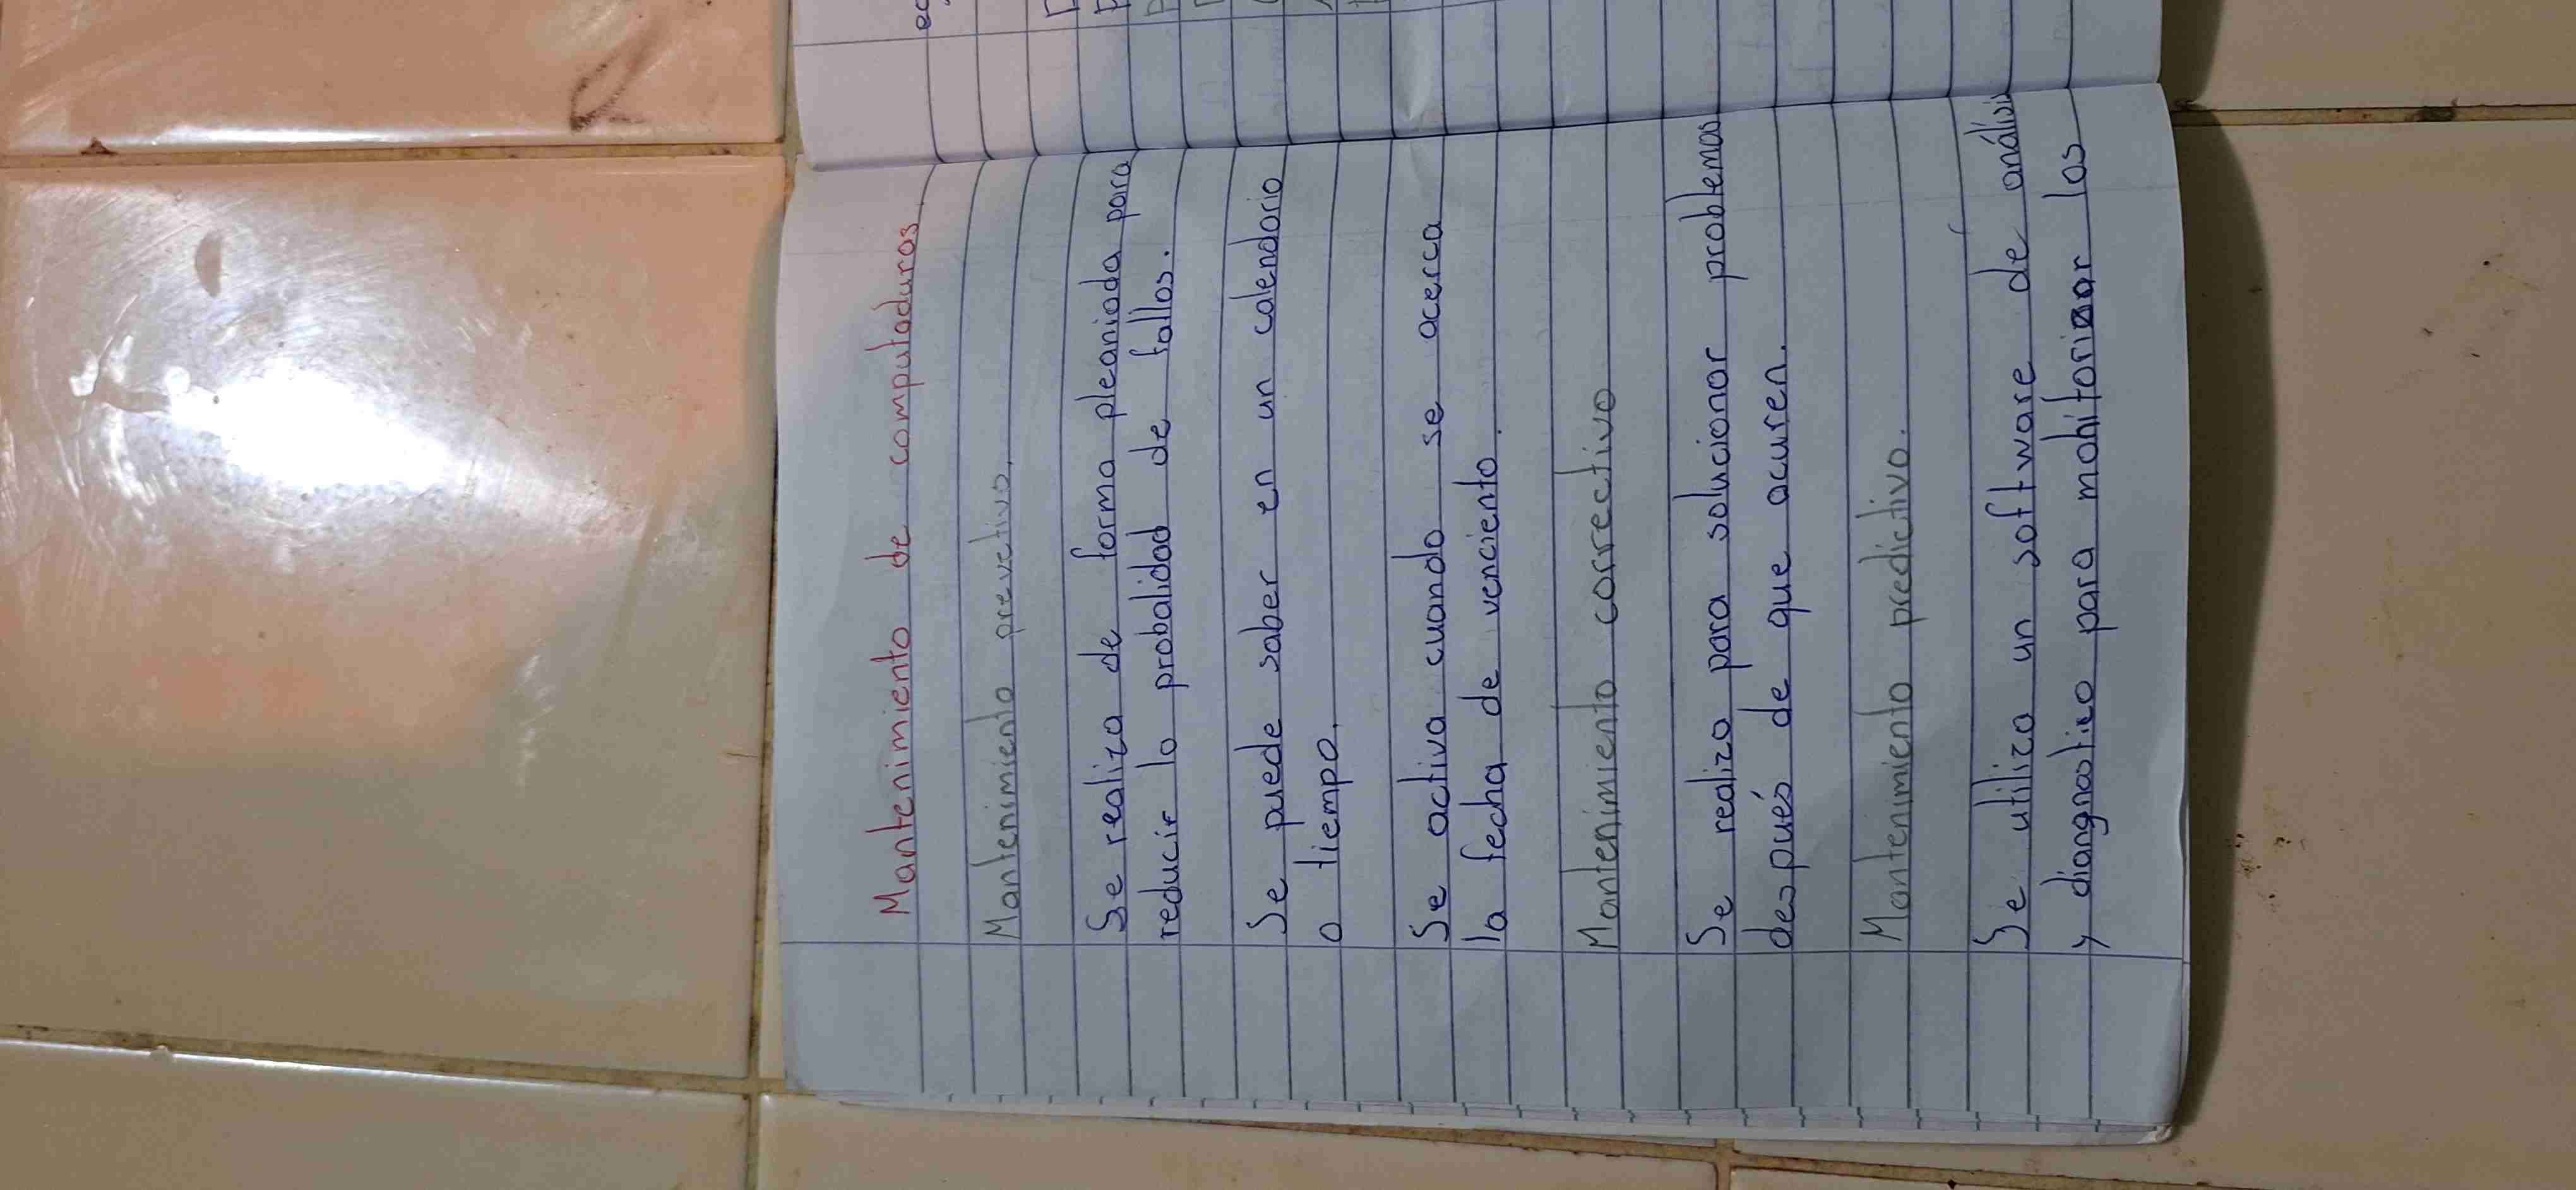 Mantenimiento de computaduras.
Mantenimiento prevetivo.
Se realiza de forma pleaniada para
reducir la probalidad de fallos.
Se puede saber en un calendario
o tiempo.
Se activa cuando se acerca
la fecha de venciento.
Mantenimiento correctivo
Se realiza para solucionar problemas
después de que acuren.
Mantenimiento predictivo.
Se utiliza un software de análisi
y diangnostico para mohitorizar los